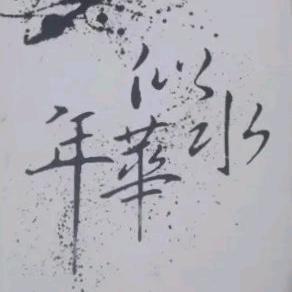 似水
年華